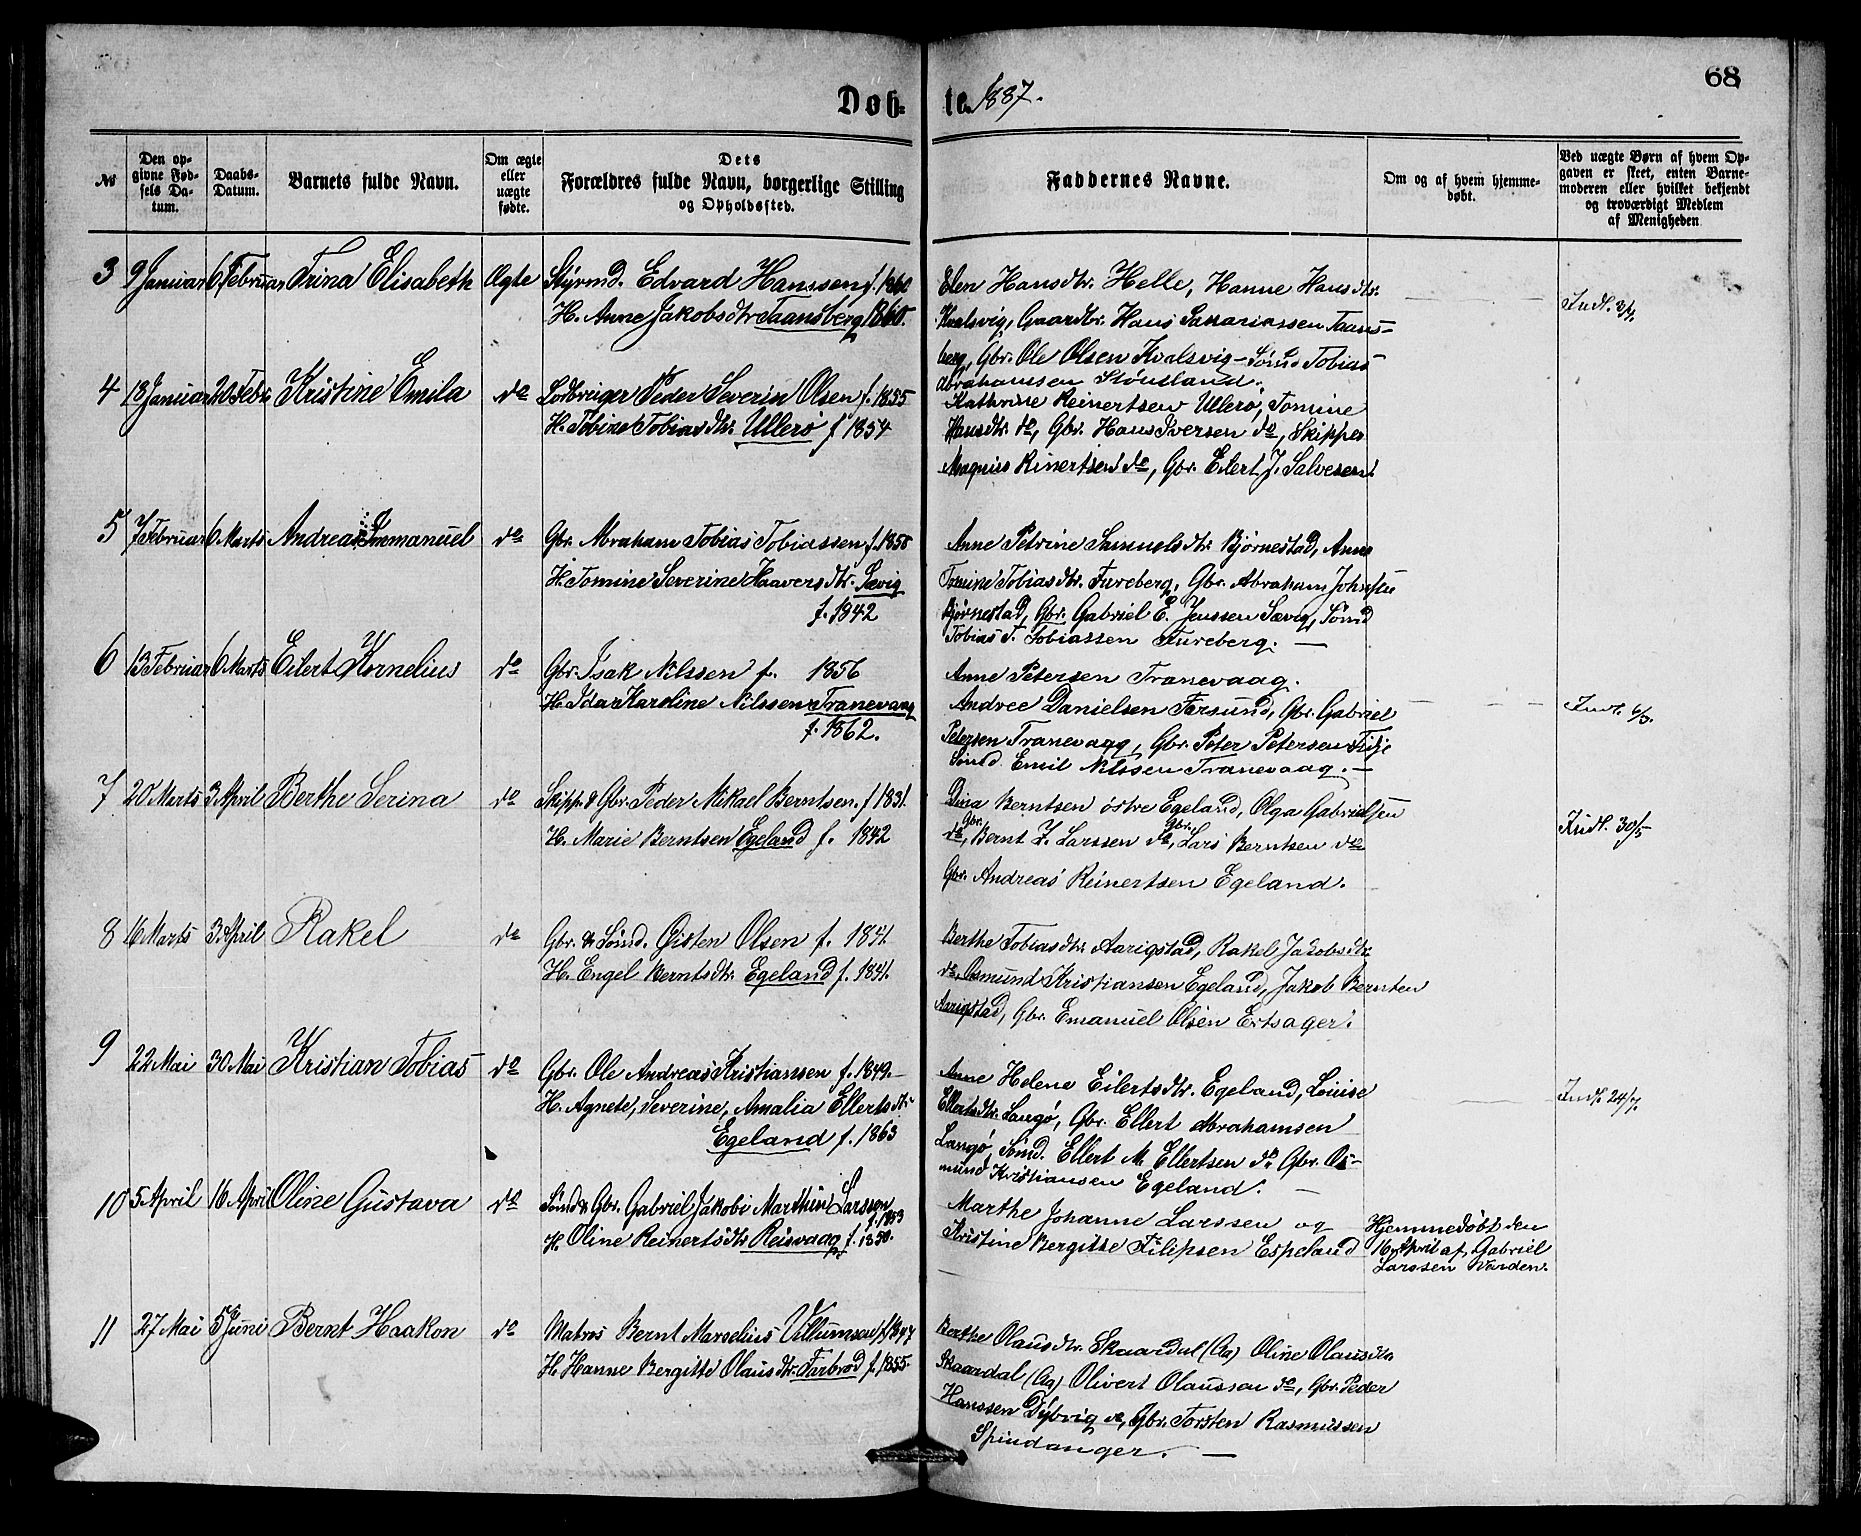 68
Døb- te. 1887.
№
Den opgivne Fødsels Datum.
Daabs-Datum.
Barnets fulde Navn.
Om ægte eller uægte fødte.
Dets Forældres fulde Navn, borgerlige Stilling og Opholdssted.
Faddernes Navne.
Om og af hvem hjemmedøbt.
Ved uægte Børn af hvem Opgaven er skeet, enten Barnemoderen eller hvilket bekjendt og troværdigt Medlem af Menigheden
3 9 Januar 6 Februar Trina Elisabeth Ægte Styrmd. Edvard Hanssen f. 1860
H. Anne Jakobsdtr. Taansberg 1860.
Elen Hansdtr. Helle, Hanne Hansdtr.
Kvalsvig, Gaardbr. Hans Sakariassen Taans-
berg, Gbr. Ole Olsen Kvalsvig - Sømd Tobias
Abrahamsen Stönsland.
Indl. 3/4.
4 18 Januar 20 Febr Kristine Emila do Lodbruger Peder Severin Olsen f. 1855
H. Tobine Tobiasdtr. Ullerø f 1854
Kathrine Reinertsen Ullerø, Tomine
Hansdtr. do, Gbr. Hans Iversen do, Skipper
Magnus Rinertsen do, Gbr. Eilert J. Salvesen.
5 7 Februar 6 Marts Andreas Immanuel do Gbr. Abraham Tobias Tobiassen f. 1858
H. Tomine Severine Haaversdtr. Sævig
f. 1842
Anne Petrine Samuelsdtr. Bjørnestad, Anne
Tomine Tobiasdtr. Fureberg, Gbr. Abraham Johnsen
Bjørnestad, Gbr. Gabriel E. Jenssen Sævig, Sømd
Tobias T. Tobiassen Fureberg. —
6 13 Februar 6 Marts Eilert Kornelius do Gbr. Isak Nilssen f. 1856
H. Ida Karoline Nilssen Tranevaag
f. 1862.
Anne Petersen Tranevaag.
Andree Danielsen Farsund, Gbr. Gabriel
Petersen Tranevaag, Gbr. Peter Petersen
Sømd Emil Nilssen Tranevaag. —
Indl. 6/3.
7 20 Marts 3 April Berthe Serina do Skipp. & Gbr. Peder Mikael Berntsen f 1831.
H. Marie Berntsen Egeland f. 1842
Dina Berntsen östre Egeland, Olga Gabrielsen
do, Gbr. Bernt Z. Larssen do, Gbr. Lars Berntsen do
Gbr. Andreas Reinertsen Egeland.
Indl. 30/5
8 6 Marts 3 April Rakel do Gbr. & Sömd. Osten Olsen f. 1841.
H. Engel Berntsdtr. Egeland f. 1841.
Berthe Tobiasdtr. Aarigstad, Rakel Jakobsdtr.
do, Osmund Kristiansen Egeland, Jakob Bernten
Aarigstad, Gbr. Emanuel Olsen Ertsager.
9 22 Mai 30 Mai Kristian Tobias do Gbr. Ole Andreas Kristiansen f. 1849. —
H. Agnete, Severine, Amalia Ellertsdtr.
Egeland f. 1863
Anne Helene Eilertsdtr. Egeland, Louise
Ellertsdtr. Langø, Gbr. Ellert Abrahamsen
Langø, Sømd. Ellert M. Ellertsen do. Gbr. Os-
mund Kristiansen Egeland. —
Indl. 24/7.
10 5 April 16 April Oline Gustava do Sömd & Gbr. Gabriel Jakobi Marthin Larssen
f. 1853
H. Oline Reinertsdtr Reisvaag f. 1850.
Marthe Johanne Larssen og
Kristine Bergitte Filipsen Espeland
Hjemmedøbt den
16 April af Gabriel
Larssen Varden.
11 27 Mai 5 Juni Bernt Haakon do Matros Bernt Marselius Villumsen f 1847
H. Hanne Bergitte Olausdtr. Farbrod f. 1855.
Berthe Olausdtr. Skaardal (Aa) Oline Olausdtr.
Skaardal (Aa) Olivert Olaussen do, Gbr. Peder
Hanssen Dybvig do, Gbr. Torsten Rasmussen
Spindanger. —